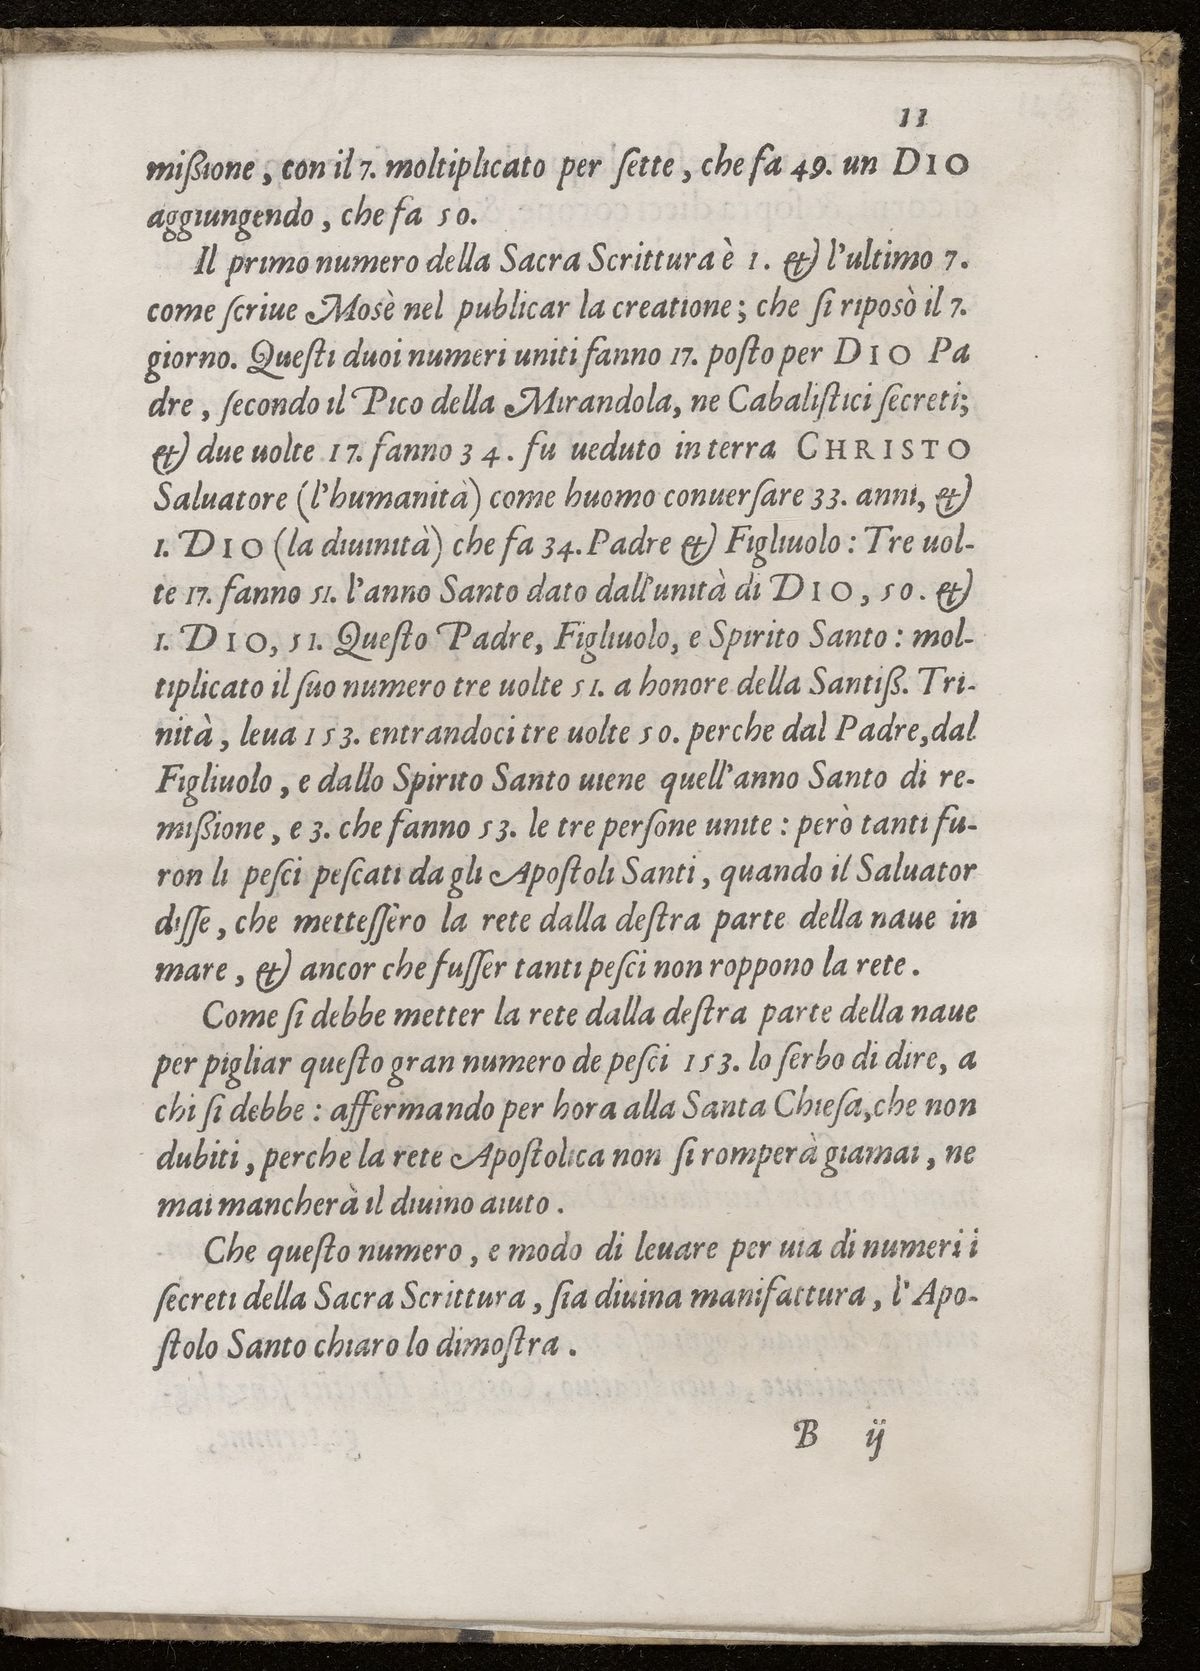 11
mißione, con il 7. moltiplicato per ſette, che fa 49. un DIO
aggiungendo, che fa 50.
Il primo numero della Sacra Scrittura è 1. & l'ultimo 7.
come ſcriue Mosè nel publicar la creatione; che ſi riposò il 7.
giorno. Queſti duoi numeri uniti fanno 17. poſto per DIO Pa
dre, ſecondo il Pico della Mirandola, ne Cabaliſtici ſecreti;
& due uolte 17. fanno 34. fu ueduto in terra CHRISTO
Saluatore (l'humanità) come huomo conuerſare 33. anni, &
1. DIO (la diuinità) che fa 34. Padre & Figliuolo: Tre uol-
te 17. fanno 51. l'anno Santo dato dall'unità di DIO, 50. &
1. DIO, 51. Queſto Padre, Figliuolo, e Spirito Santo: mol-
tiplicato il ſuo numero tre uolte 51. a honore della Santiß. Tri-
nità, leua 153. entrandoci tre uolte 50. perche dal Padre, dal
Figliuolo, e dallo Spirito Santo uiene quell'anno Santo di re-
mißione, e 3. che fanno 53. le tre perſone unite: però tanti fu-
ron li peſci peſcati da gli Apoſtoli Santi, quando il Saluator
diſſe, che metteſſero la rete dalla deſtra parte della naue in
mare, & ancor che fuſſer tanti peſci non roppono la rete.
Come ſi debbe metter la rete dalla deſtra parte della naue
per pigliar queſto gran numero de peſci 153. lo ſerbo di dire, a
chi ſi debbe: affermando per hora alla Santa Chieſa, che non
dubiti, perche la rete Apoſtolica non ſi romperà giamai, ne
mai mancherà il diuino aiuto.
Che queſto numero, e modo di leuare per uia di numeri i
ſecreti della Sacra Scrittura, ſia diuina manifattura, l'Apo-
ſtolo Santo chiaro lo dimoſtra.
B ij